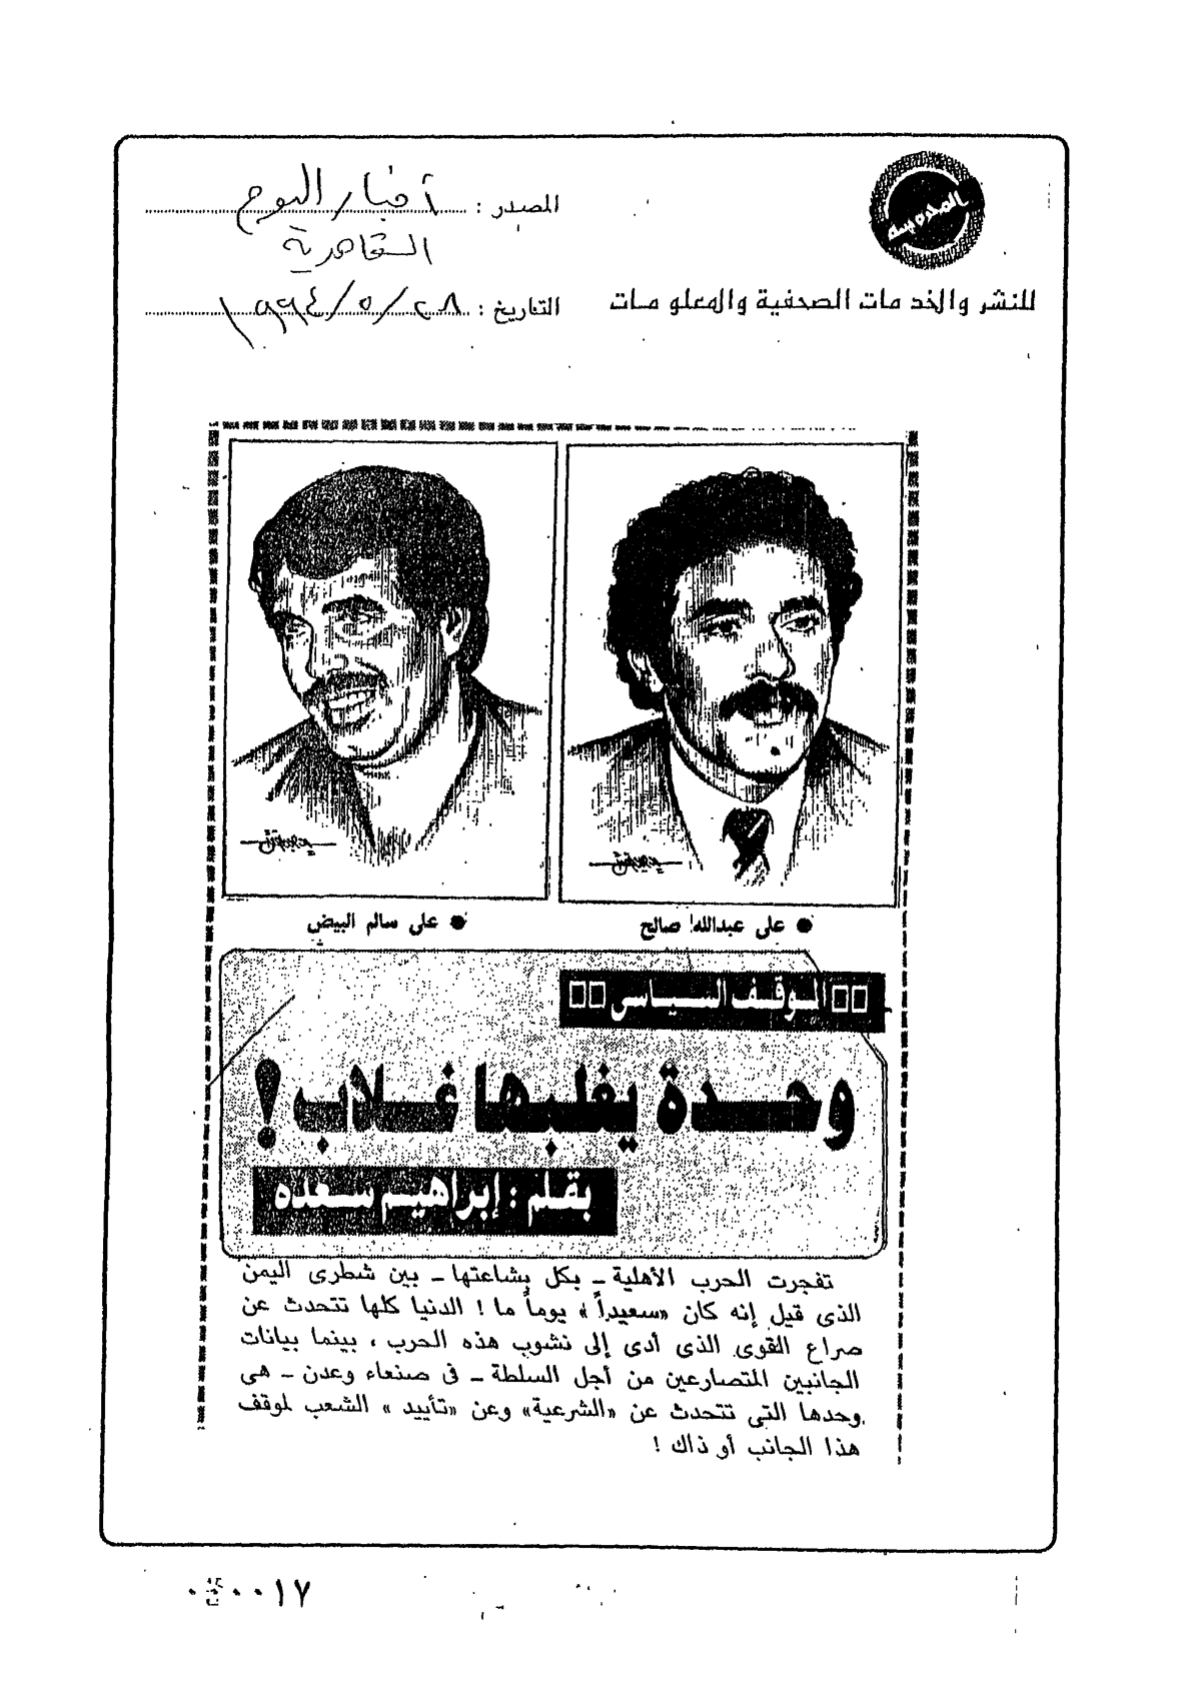 المحروسة
المصدر : أخبار اليوم
القاهرية
للنشر والخدمات الصحفية والمعلومات
التاريخ : ٢٨/٥/١٩٩٤
● على عبدالله صالح
● على سالم البيض
الموقف السياسى
وحدة يغلبها غلاب !
بقلم : إبراهيم سعده
تفجرت الحرب الأهلية ـ بكل بشاعتها ـ بين شطرى اليمن
الذى قيل إنه كان «سعيداً» يوماً ما ! الدنيا كلها تتحدث عن
صراع القوى الذى أدى إلى نشوب هذه الحرب ، بينما بيانات
الجانبين المتصارعين من أجل السلطة ـ فى صنعاء وعدن ـ هى
وحدها التى تتحدث عن «الشرعية» وعن «تأييد» الشعب لموقف
هذا الجانب أو ذاك !